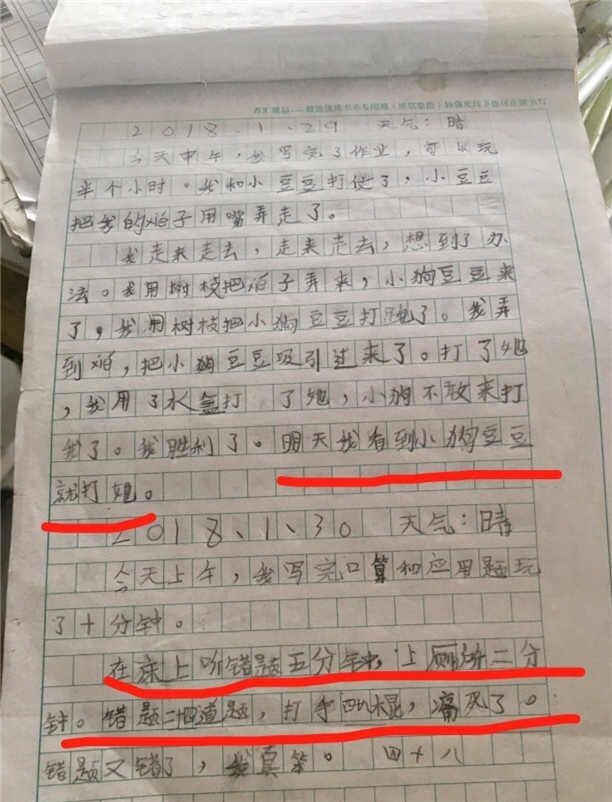 2018、1、29 天气：晴
今天中午，我写完了作业，可以玩
半个小时。我和小豆豆打仗了，小豆豆
把我的 子用嘴弄走了。
我走来走去，走来走去，想到了办
法。我用树枝把 子弄来，小狗豆豆来
了，我用树枝把小狗豆豆打跑了。我弄
到 ，把小狗豆豆吸引过来了。打了她
，我用了水盒打 了她，小狗不敢来打
我了。我胜利了。明天我看到小狗豆豆
就打她。
2018、1、30 天气：晴
今天上午，我写完口算和应用题玩
了十分钟。
在床上听错题五分钟，上厕所二分
钟。错题二四道题，打手四八棍，痛死了。
错题又错了，我真笨。 四十八